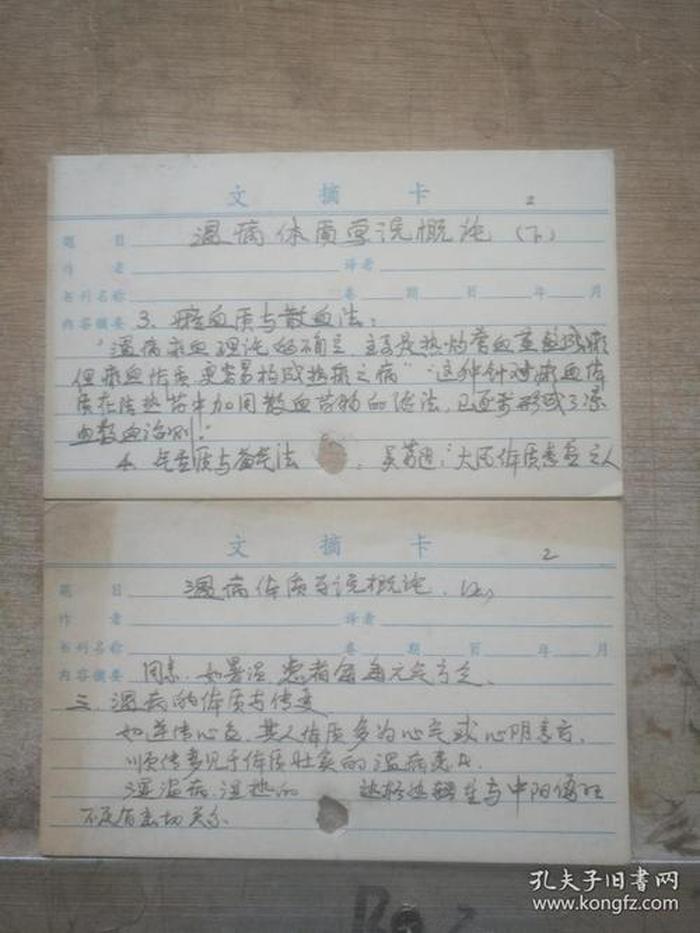 文摘卡 2
题目 温病体质学说概论(下)
作者 译者
书刊名称 卷 期 日 年 月
内容摘要 3、瘀血质与散血法:
"温病瘀血理论的确立,主要是热灼营血蒸熬成瘀
但瘀血体质更容易构成热瘀之病"这种针对瘀血体
质在清热药中加用散血药物的治法,已逐步形成了凉
血散血治则!"
4、气虚质与益气法 :吴菊通:"大凡体质素虚之人
文摘卡 2
题目 温病体质学说概论
作者 译者
书刊名称 卷 期 日 年 月
内容摘要 因素,如暑湿,患者每每元气亏乏、
三、温病的体质与传变
如逆传心包,其人体质多为心气或心阴素亏、
顺传多见于体质壮实的温病患者
湿温病,湿热的 热转化与中阳偏旺
不足有密切关系
孔夫子旧书网
www.kongfz.com